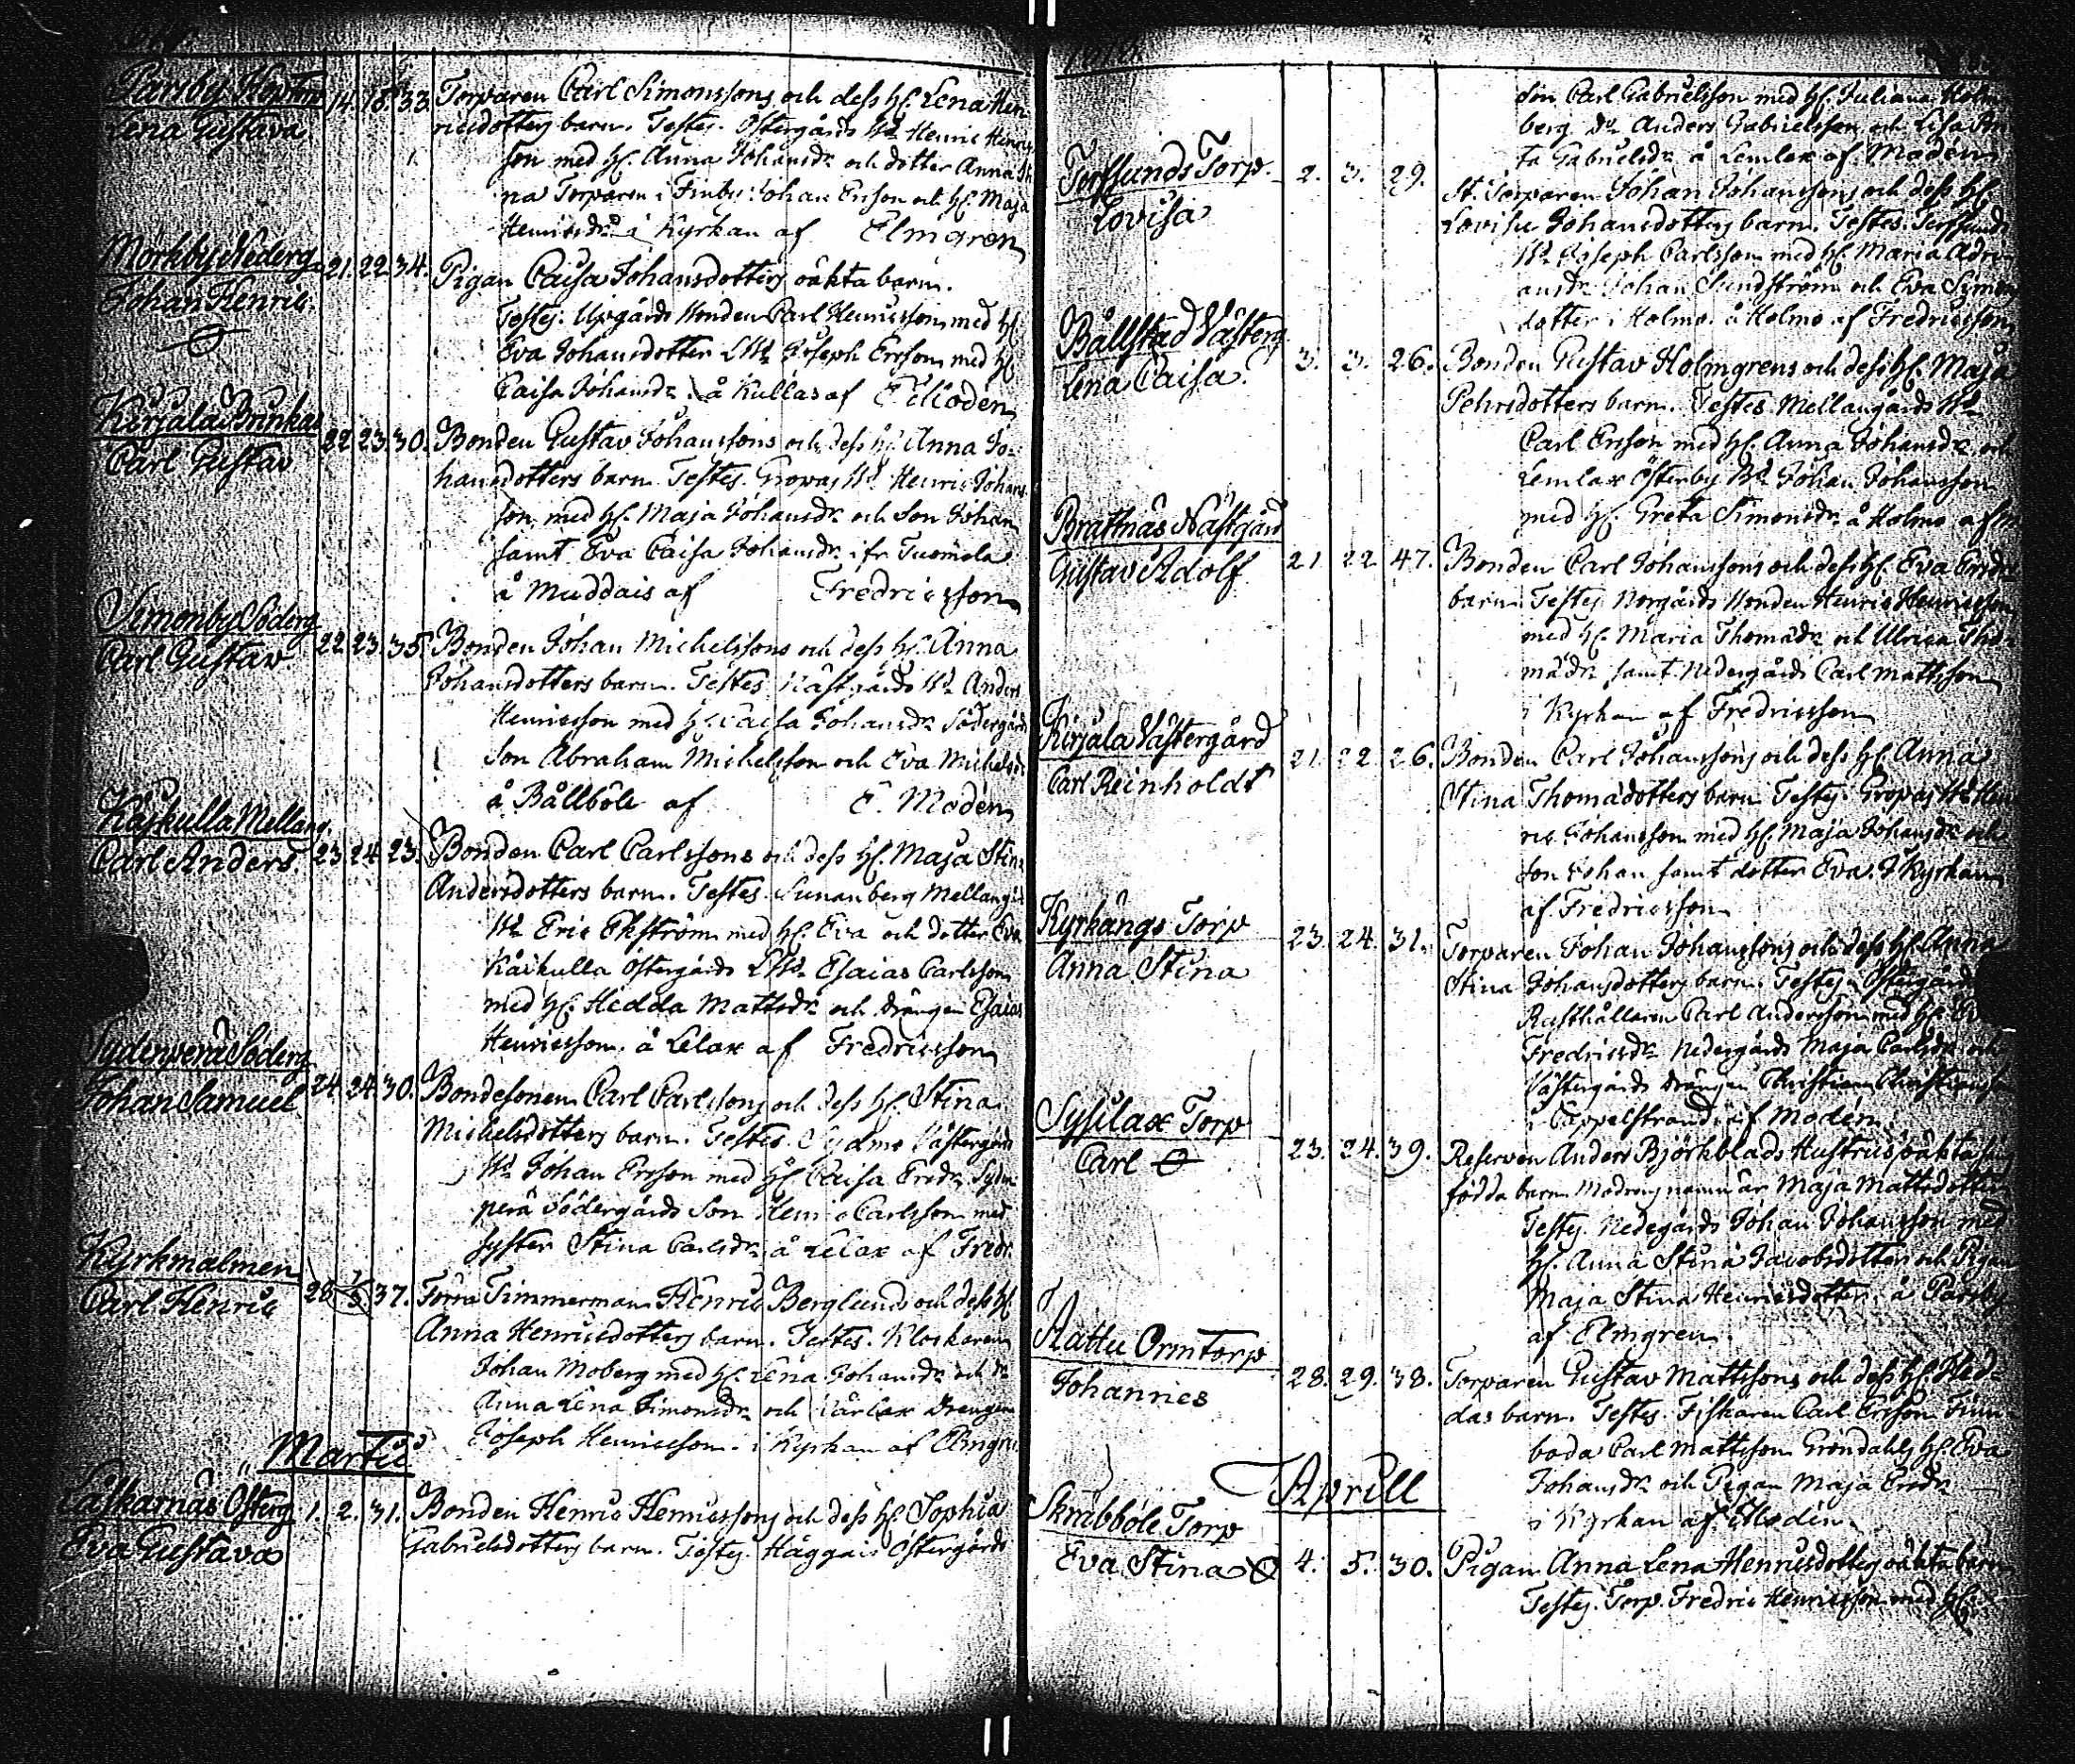 Parsby
Lena Gustava
14. 18. 33. Torparen Carl Simonssons och dess H. Lena Hen
ricsdotters barn. Testes. Östergårds Wd Henric Henrics
son med H. Anna Johansdr och dotter Anna Sti
na Torparen i Finby Johan Ersson och H. Maja
Henricsdr i Kyrkan af Elmgren
Mörkby Nederg.
Johan Henric
21. 22. 34. Pigan Caisa Johansdotters oäkta barn.
Testes. Uppgårds Bonden Carl Henricsson med H.
Eva Johansdotter Joseph Ersson med H.
Caisa Johansdr. å Kullas af E Moden
Kirjala Brinkas
Carl Gustav
22. 23. 30. Bonden Gustav Johanssons och dess H. Anna Jo-
hansdotters barn. Testes. Gropas Wd Henric Johans
son med H. Maja Johansdr och Son Johan
samt Eva Caisa Johansdr ifr. Tuomola
å Muddais af Fredricsson
Simonby Söderg
Carl Gustav
22. 23. 35. Bonden Johan Michelssons och dess H. Anna
Johansdotters barn. Testes Nästgårds Wd Anders
Henricsson med H. Caisa Johansdr Södergårds
Son Abraham Michelsson och Eva Michelsdr
å Bållböle af E. Moden
Käskulla Mellang.
Carl Anders.
23. 24. 23. Bonden Carl Carlssons och dess H. Maja Stina
Andersdotters barn. Testes. Sunanberg Mellangårds
Wd Eric Ekström med H. Eva och dotter Eva
Käskulla Östergårds Esaias Carlsson
med H. Hedda Mattsdr och drängen Esaias
Henricsson. å Lelax af Fredricsson
Sydenperä Söderg
Johan Samuel
24. 24. 30. Bondesonen Carl Carlssons och dess H. Stina
Michelsdotters barn. Testes. Sydmo Västergårds
Wd Johan Ersson med H. Caisa Ersdr Syden
perä Södergårds Son Henric Carlsson med
syster Stina Carlsdr å Lelax af Fredr.
Kyrkmalmen
Carl Henric
28. 1/3 37. Förra Timmerman Henric Berglunds och dess H.
Anna Henricsdotters barn. Testes. Klockaren
Johan Moberg med H. Lena Johansdr och dr
Anna Lena Simonsdr och Vårlax Drengen
Joseph Henricsson. i Kyrkan af Elmgren
Martii
Laskarnäs Österg
Eva Gustava
1. 2. 31. Bonden Henric Henricssons och dess H. Sophia
Gabrielsdotters barn. Testes. Häggais Östergårds
son Carl Gabrielsson med H. Juliana Holm
berg dr Anders Gabrielsson och Lisa
ta Gabrielsdr å Lemlax af Moden
Torfsunds Torp.
Lovisa
2. 3. 29. St. Torparen Johan Johanssons och dess H.
Lovisa Johansdotters barn. Testes. Torfsunds
Wd Joseph Carlsson med H. Maria Adri
ansdr Johan Sundström och Eva Simons
dotter i Holmo. å Holmo af Fredricsson
Bållstad Västerg
Lena Caisa
3. 3. 26. Bonden Gustav Holmgrens och dess H. Maja
Pehrsdotters barn. Testes. Mellangårds Wd
Carl Ersson med H. Anna Johansdr och
Lemlax Österby Wd Johan Johansson
med H. Greta Simonsdr å Holmo af
Brattnäs Nästgård
Gustav Adolf
21. 22. 47. Bonden Carl Johanssons och dess H. Eva Ersdrs
barn. Testes. Norgårds Bonden Henric Henricsson
med H. Maria Thomädr och Ulrica Tho
mädr samt Nedergårds Carl Mattsson
i Kyrkan af Fredricsson
Kirjala Västergård
Carl Reinholdt
21. 22. 26. Bonden Carl Johanssons och dess H. Anna
Stina Thomädotters barn. Testes. Gropas Wd Hen
ric Johansson med H. Maja Johansdr och
Son Johan samt dotter Eva. I Kyrkan
af Fredricsson
Kyrkängs Torp
Anna Stina
23. 24. 31. Torparen Johan Johanssons och dess H. Anna
Stina Johansdotters barn. Testes. Östergårds
Rusthållaren Carl Andersson med H. Eva
Fredricsdr Nedergårds Maja Carlsdr och
Västergårds drängen Christian Christiansson
i Cappelstrand af Modén
Sysilax Torp
Carl
23. 24. 39. Reserven Anders Björkblads Hustrus oäkta
födda barn. Modrens namn är Maja Mattsdotter
Testes. Nedegårds Johan Johansson med
H. Anna Stina Jacobsdotter och Pigan
Maja Stina Henricsdotter å Parsby
af Elmgren.
Attu Ormtorp
Johannes
28. 29. 38. Torparen Gustav Mattssons och dess H. Hed-
das barn. Testes. Fiskaren Carl Ersson Finn
boda Carl Mattsson Gröndahls H. Eva
Johansdr och Pigan Maja Ersdr
i Kyrkan af Modén
Aprill
Skräbböle Torp
Eva Stina
4. 5. 30. Pigan Anna Lena Henricsdotters oäkta barn
Testes. Torp. Fredric Henricsson med H.